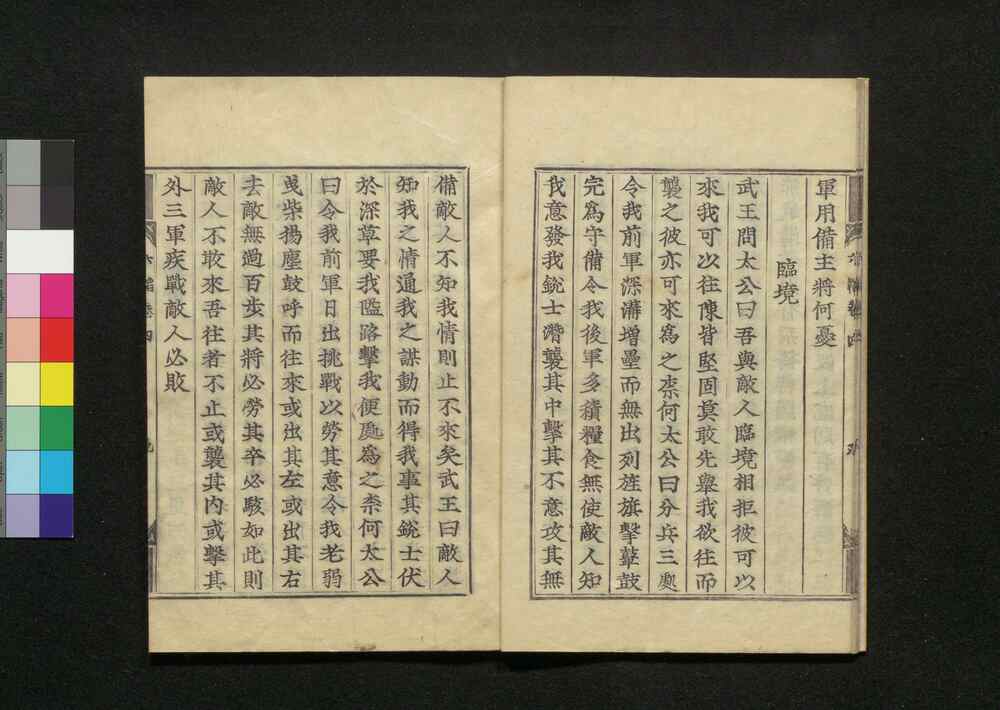 軍用備主將何憂
臨境
武王問太公曰吾與敵人臨境相拒彼可以
來我可以往陳皆堅固莫敢先舉我欲往而
襲之彼亦可來爲之柰何太公曰分兵三處
令我前軍深溝增壘而無出列旌旗擊鼙鼓
完爲守備令我後軍多積糧食無使敵人知
我意發我銳士潛襲其中擊其不意攻其無
備敵人不知我情則止不來矣武王曰敵人
知我之情通我之謀動而得我事其銳士伏
於深草要我隘路擊我便處爲之柰何太公
曰令我前軍日出挑戰以勞其意令我老弱
曳柴揚塵鼓呼而往來或出其左或出其右
去敵無過百步其將必勞其卒必駭如此則
敵人不敢來吾往者不止或襲其內或擊其
外三軍疾戰敵人必敗